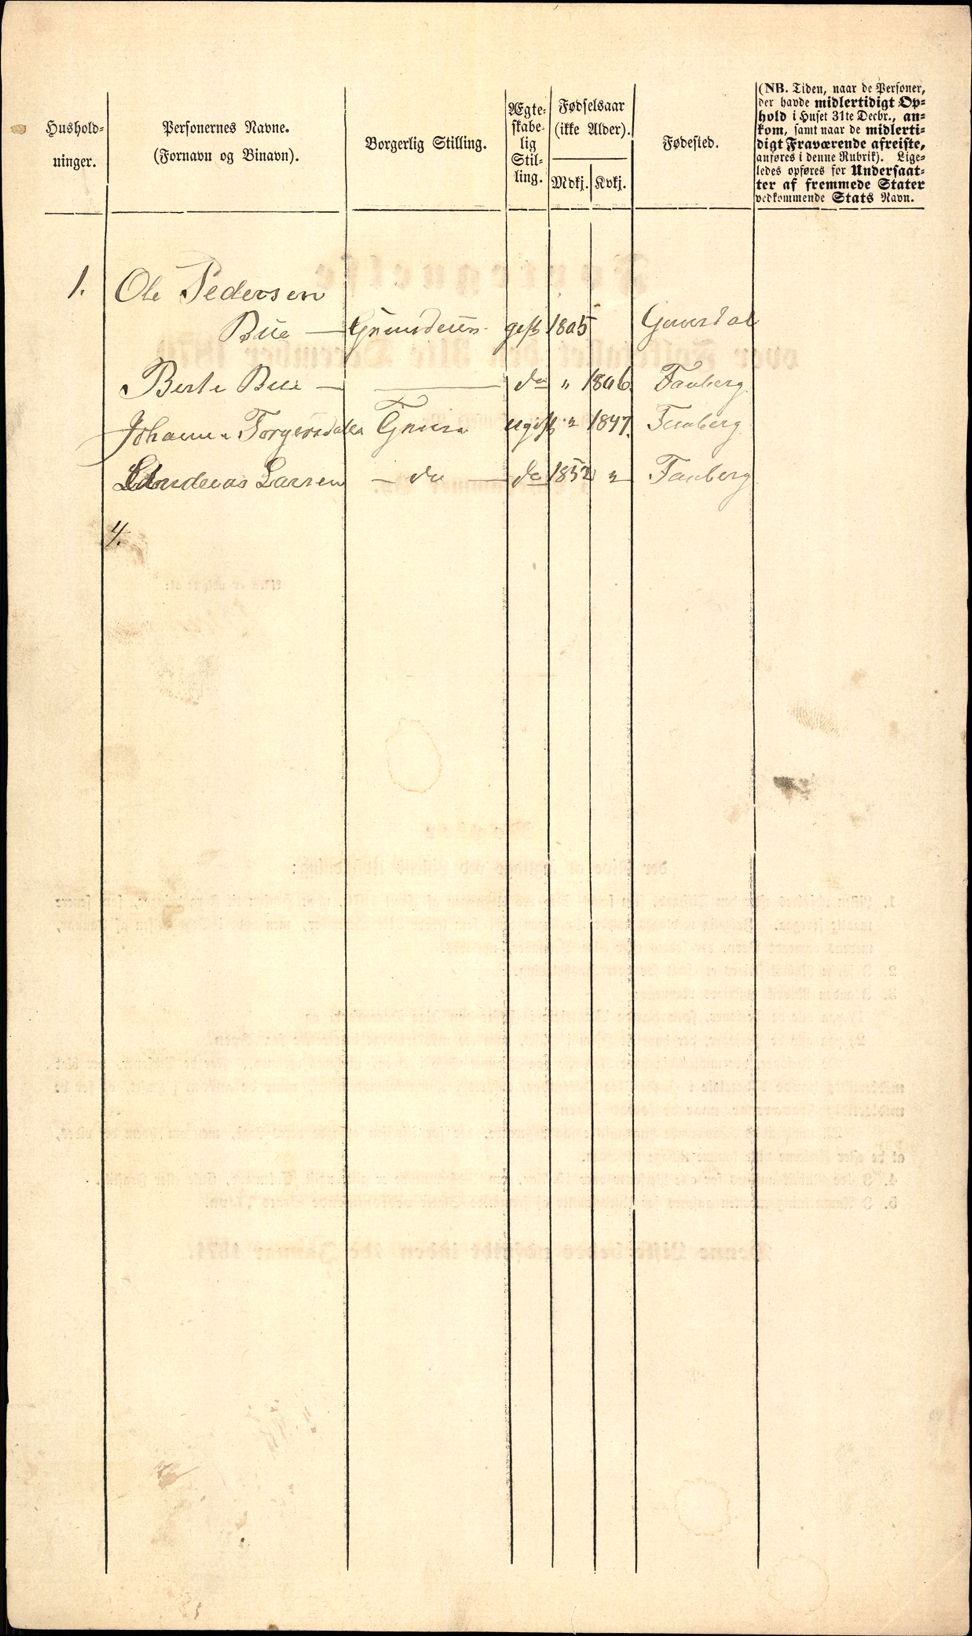 Hushold-
ninger.
Personernes Navne.
(Fornavn og Binavn).
Borgerlig Stilling.
Ægte-
skabe-
lig
Stil-
ling.
Fødselsaar
(ikke Alder).
Mdkj. Kvkj.
Fødested.
(NB. Tiden, naar de Personer,
der havde midlertidigt Op-
hold i Huset 31te Decbr., an-
kom, samt naar de midlerti-
digt Fraværende afreiste,
anføres i denne Rubrik). Lige-
ledes opføres for Undersaat-
ter af fremmede Stater
vedkommende Stats Navn.
1. Ole Pedersen
Bue — gift 1805 Gausdal
Berte Bue — — do " 1806 Faaberg
Torgersdalen ugift " 1847. Faaberg
Andreas Larsen — do — do 1852 " Faaberg
4.